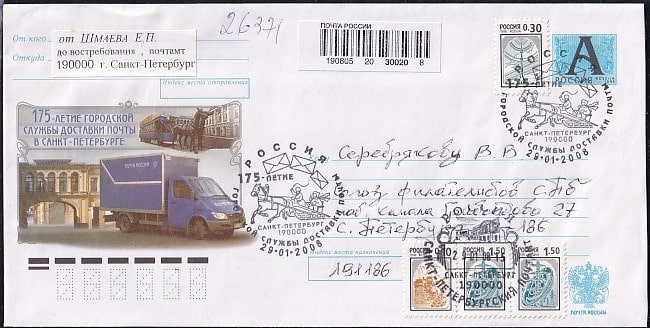 26371
ПОЧТА РОССИИ
190805 20 30020 8
От кого от ШМАЕВА Е.П.
до востребования , почтамт
Откуда 190000 г. Санкт-Петербург
Индекс места отправления
РОССИЯ 0.30
А
РОССИЯ
РОССИЯ
175-ЛЕТИЕ
ГОРОДСКОЙ СЛУЖБЫ ДОСТАВКИ ПОЧТЫ
САНКТ-ПЕТЕРБУРГ
190000
29-01-2008
175-ЛЕТИЕ ГОРОДСКОЙ
СЛУЖБЫ ДОСТАВКИ ПОЧТЫ
В САНКТ-ПЕТЕРБУРГЕ
РОССИЯ
175-ЛЕТИЕ
ГОРОДСКОЙ СЛУЖБЫ ДОСТАВКИ ПОЧТЫ
САНКТ-ПЕТЕРБУРГ
190000
29-01-2008
Серебрякову В. В
союз филателистов СПб
наб. канала 27
С. Петербург 186
Индекс места назначения
191186
РОССИЯ
РОССИЯ 1.50
РОССИЯ 1.50
САНКТ-ПЕТЕРБУРГ
190000
САНКТ-ПЕТЕРБУРГСКИЙ ПОЧТАМТ
ПОЧТА РОССИИ